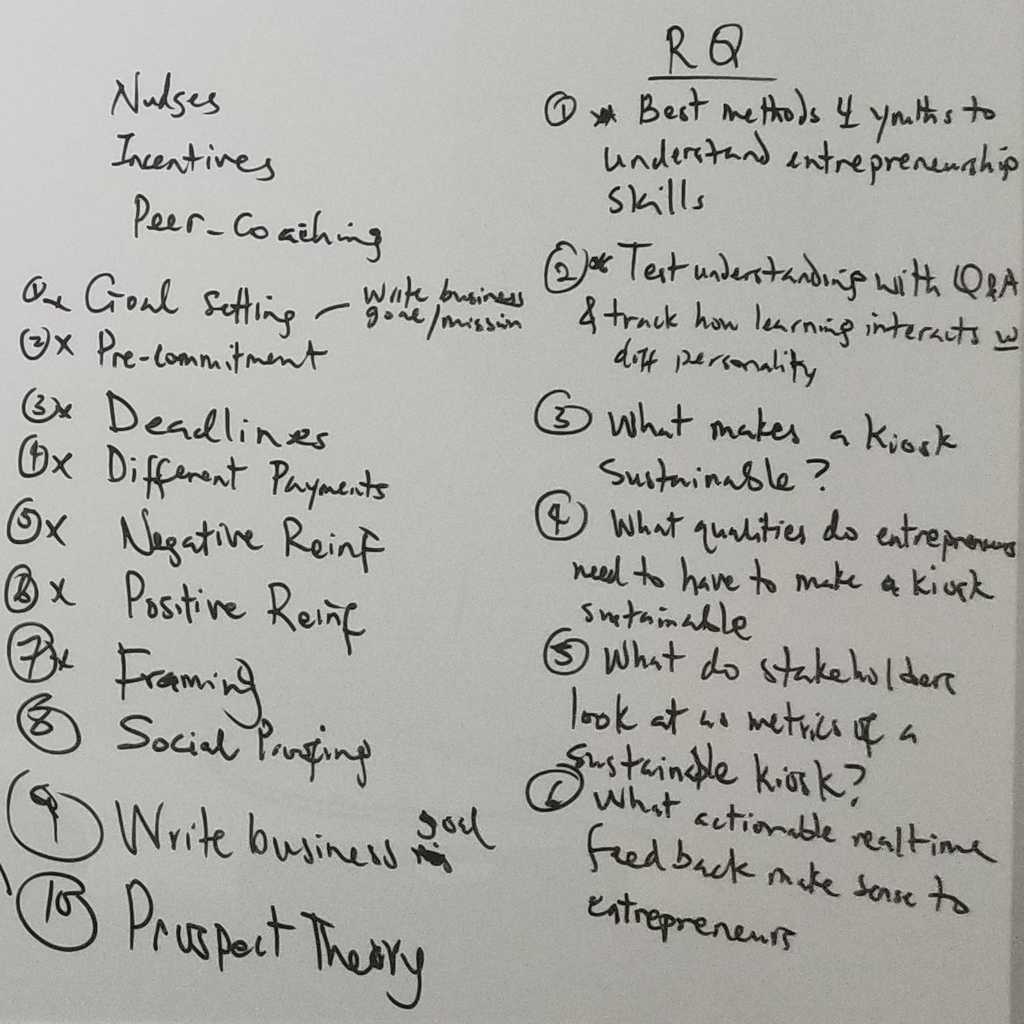 Nudges
Incentives
Peer-Coaching
① x Goal Setting — write business
goal/mission
② x Pre-commitment
③ x Deadlines
④ x Different Payments
⑤ x Negative Reinf
⑥ x Positive Reinf
⑦ x Framing
⑧ Social Proofing
⑨ Write business goal
⑩ Prospect Theory
RQ
① * Best methods 4 youths to
understand entrepreneurship
skills
② * Test understanding with Q&A
& track how learning interacts w
diff personality
③ What makes a kiosk
sustainable?
④ What qualities do entrepreneurs
need to have to make a kiosk
sustainable
⑤ What do stakeholders
look at as metrics of a
sustainable kiosk?
⑥ What actionable realtime
feedback make sense to
entrepreneurs